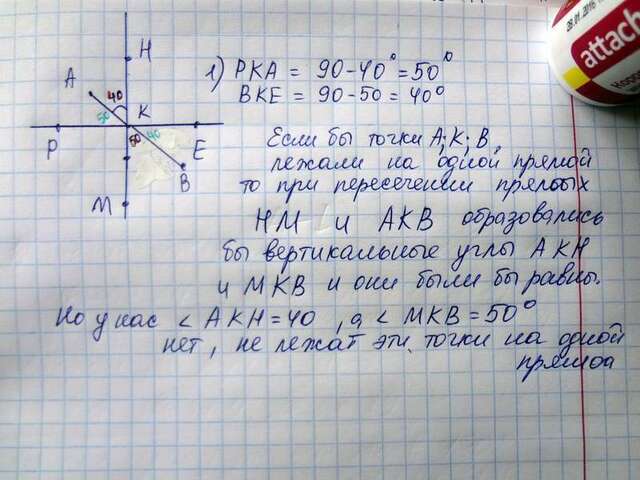 H
A
40
50
K
P
50
40
E
B
M
1) PKA = 90 - 40° = 50°
BKE = 90 - 50 = 40°
Если бы точки A; K; B,
лежали на одной прямой
то при пересечении прямых
HM и AKB образовались
бы вертикальные углы AKH
и MKB и они были бы равны.
Но у нас < AKH = 40 , а < MKB = 50°
нет, не лежат эти точки на одной
прямоа
attach